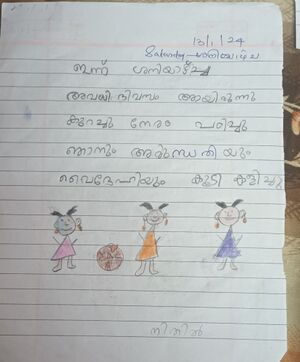 13/1/24
Saturday - ശനിയാഴ്ച
ഇന്ന് ശനിയാഴ്ച്ച
അവധി ദിവസം ആയിരുന്നു
കുറച്ചു നേരം പഠിച്ചു
ഞാനും അരുന്ധതിയും
വൈദ്ദേഹിയും കൂടി കളിച്ചു
നിതിൽ